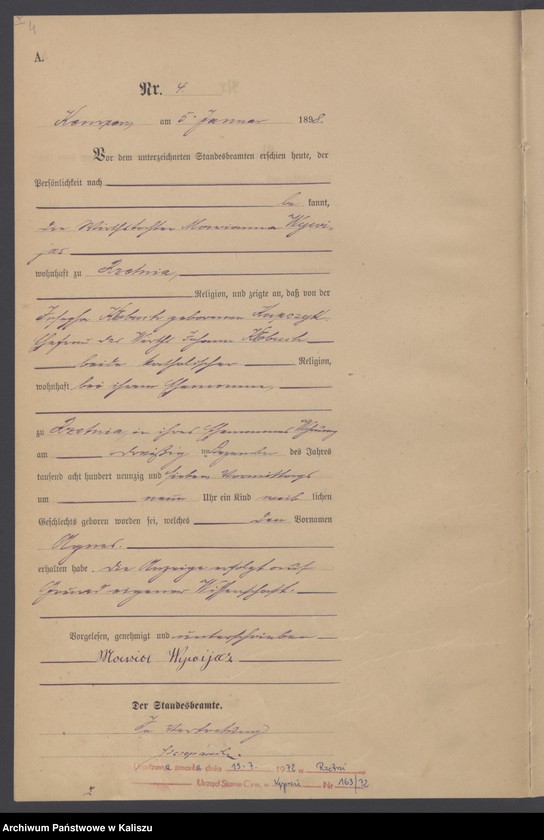 4
A.
Nr. 4.
am 5. Januar 1898.
Vor dem unterzeichneten Standesbeamten erschien heute, der
Persönlichkeit nach
be kannt,
die Wirthstochter Marianna
wohnhaft zu Rzetnia,
Religion, und zeigte an, daß von der
Josepha geborenen Kupczyk
Ehefrau des Wirths Johann
beide katholischer Religion,
wohnhaft bei ihrem Ehemanne,
zu Rzetnia, in ihres Ehemannes Wohnung
am dreißig ten Dezember des Jahres
tausend acht hundert neunzig und sieben Vormittags
um neun Uhr ein Kind weib lichen
Geschlechts geboren worden sei, welches den Vornamen
Agnes.
erhalten habe. Die Anzeige erfolgt auf
Grund eigener Wissenschaft.
Vorgelesen, genehmigt und unterschrieben
Der Standesbeamte.
In Vertretung
zmarła dnia 13.7. 1972 w Rzetni
Urząd Stanu Cyw. w Nr 163/72
Archiwum Państwowe w Kaliszu